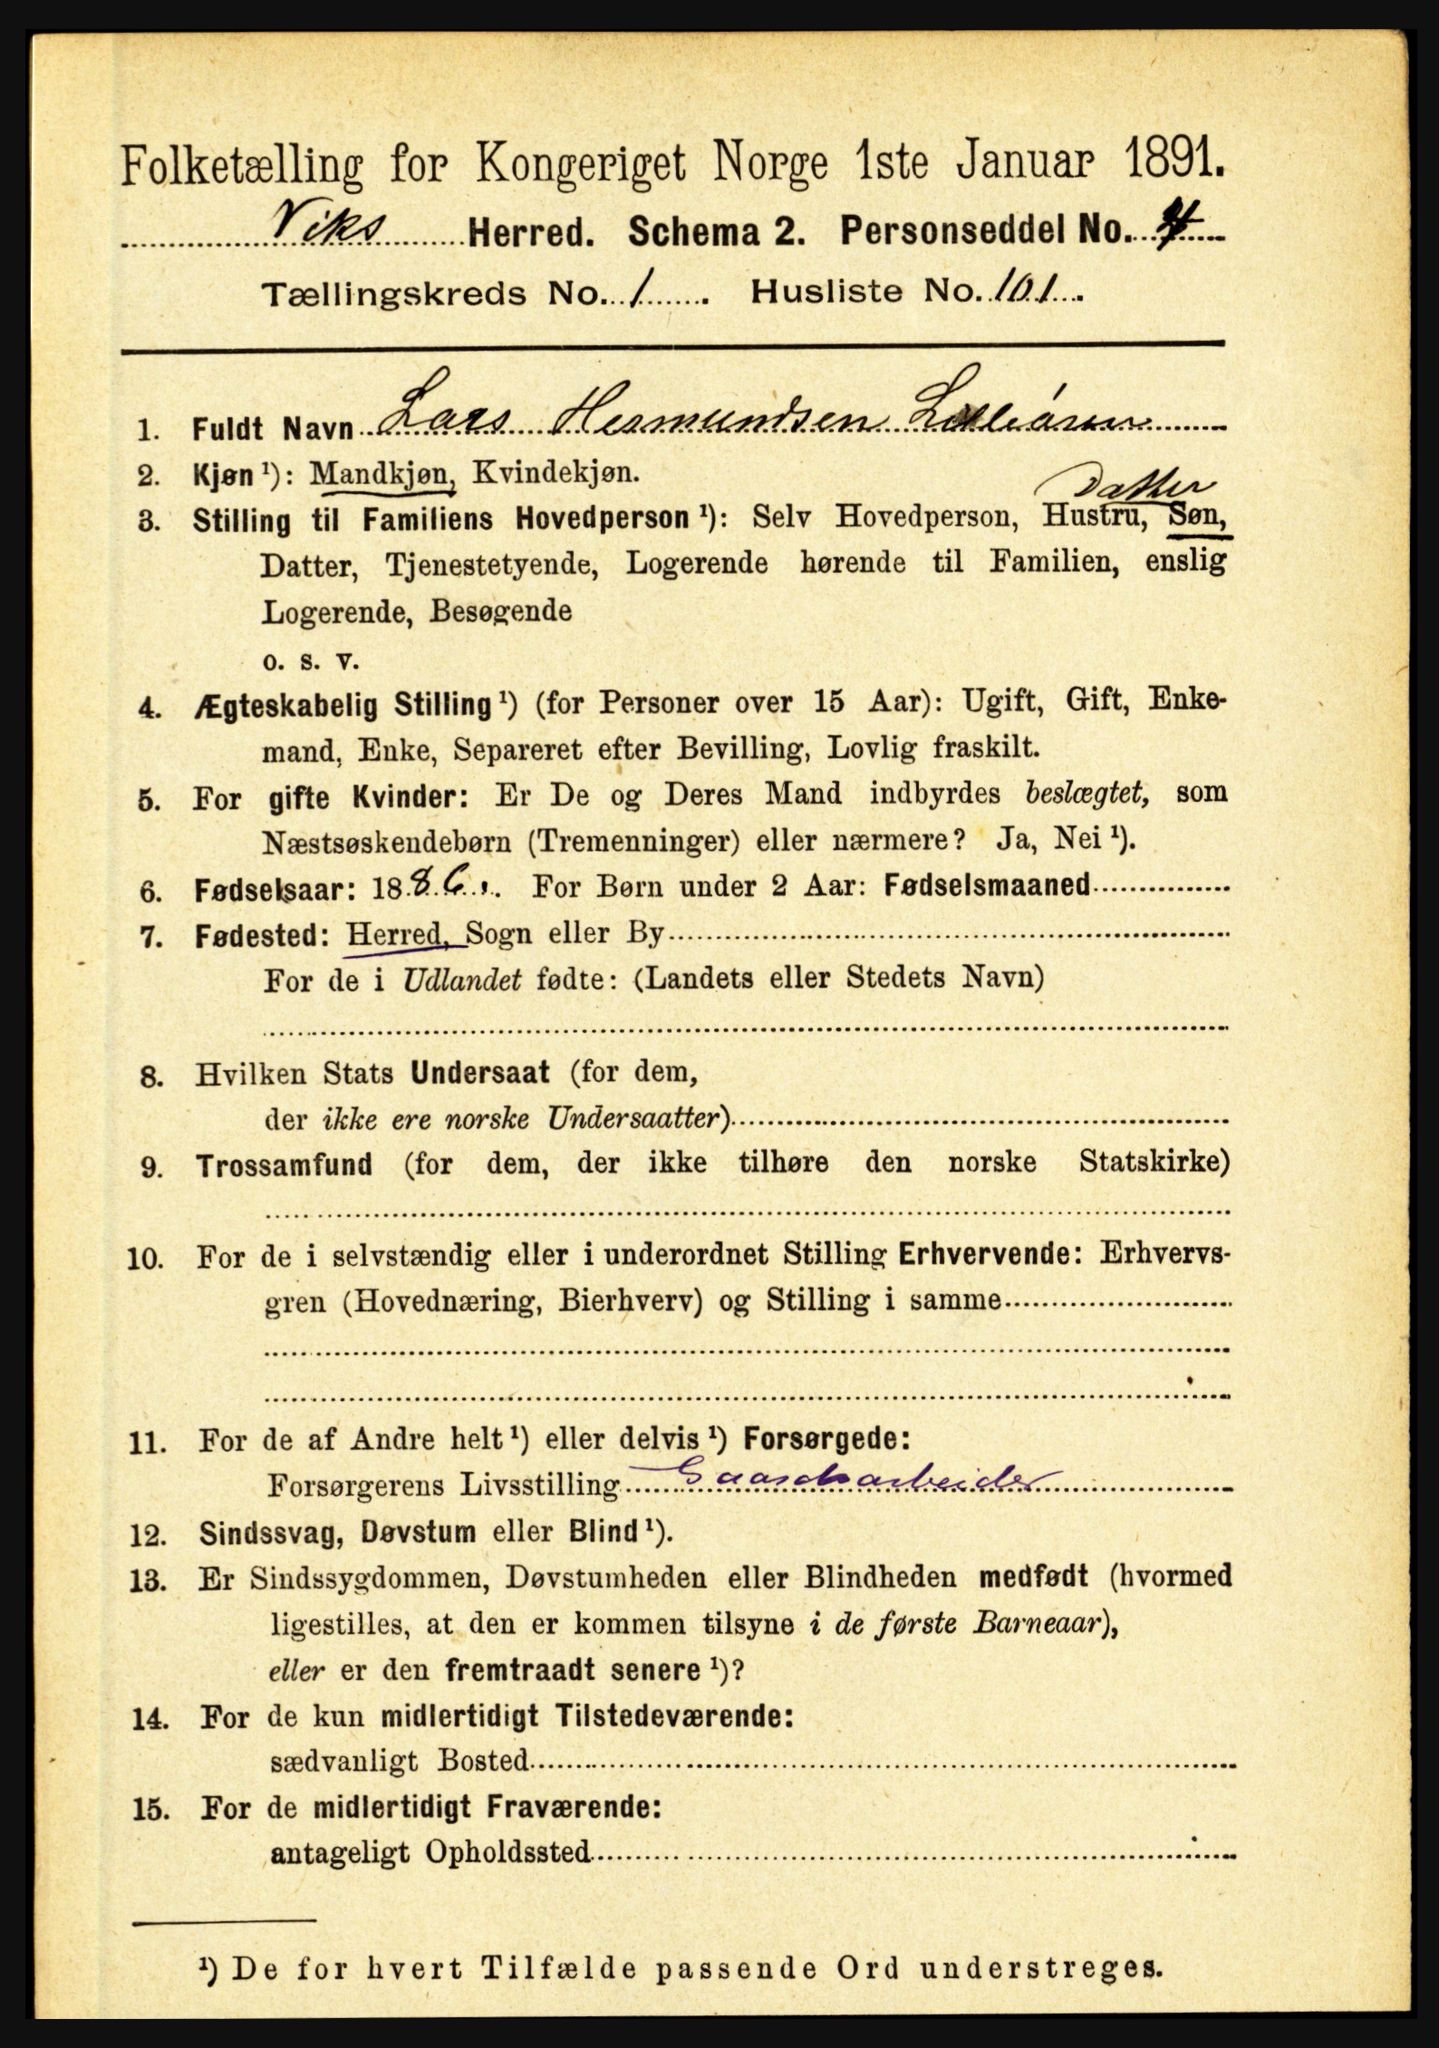 Folketælling for Kongeriget Norge 1ste Januar 1891.
Viks Herred. Schema 2. Personseddel No. 4
Tællingskreds No. 1. Husliste No. 101.
1. Fuldt Navn Lars Hermundsen
2. Kjøn ¹): Mandkjøn, Kvindekjøn.
Datter
3. Stilling til Familiens Hovedperson ¹): Selv Hovedperson, Hustru, Søn,
Datter, Tjenestetyende, Logerende hørende til Familien, enslig
Logerende, Besøgende
o. s. v.
4. Ægteskabelig Stilling ¹) (for Personer over 15 Aar): Ugift, Gift, Enke-
mand, Enke, Separeret efter Bevilling, Lovlig fraskilt.
5. For gifte Kvinder: Er De og Deres Mand indbyrdes beslægtet, som
Næstsøskendebørn (Tremenninger) eller nærmere? Ja, Nei ¹).
6. Fødselsaar: 1886. For Børn under 2 Aar: Fødselsmaaned
7. Fødested: Herred, Sogn eller By
For de i Udlandet fødte: (Landets eller Stedets Navn)
8. Hvilken Stats Undersaat (for dem,
der ikke ere norske Undersaatter)
9. Trossamfund (for dem, der ikke tilhøre den norske Statskirke)
10. For de i selvstændig eller i underordnet Stilling Erhvervende: Erhvervs-
gren (Hovednæring, Bierhverv) og Stilling i samme
11. For de af Andre helt ¹) eller delvis ¹) Forsørgede:
Forsørgerens Livsstilling Gaardarbeider
12. Sindssvag, Døvstum eller Blind ¹).
13. Er Sindssygdommen, Døvstumheden eller Blindheden medfødt (hvormed
ligestilles, at den er kommen tilsyne i de første Barneaar),
eller er den fremtraadt senere ¹)?
14. For de kun midlertidigt Tilstedeværende:
sædvanligt Bosted
15. For de midlertidigt Fraværende:
antageligt Opholdssted
¹) De for hvert Tilfælde passende Ord understreges.